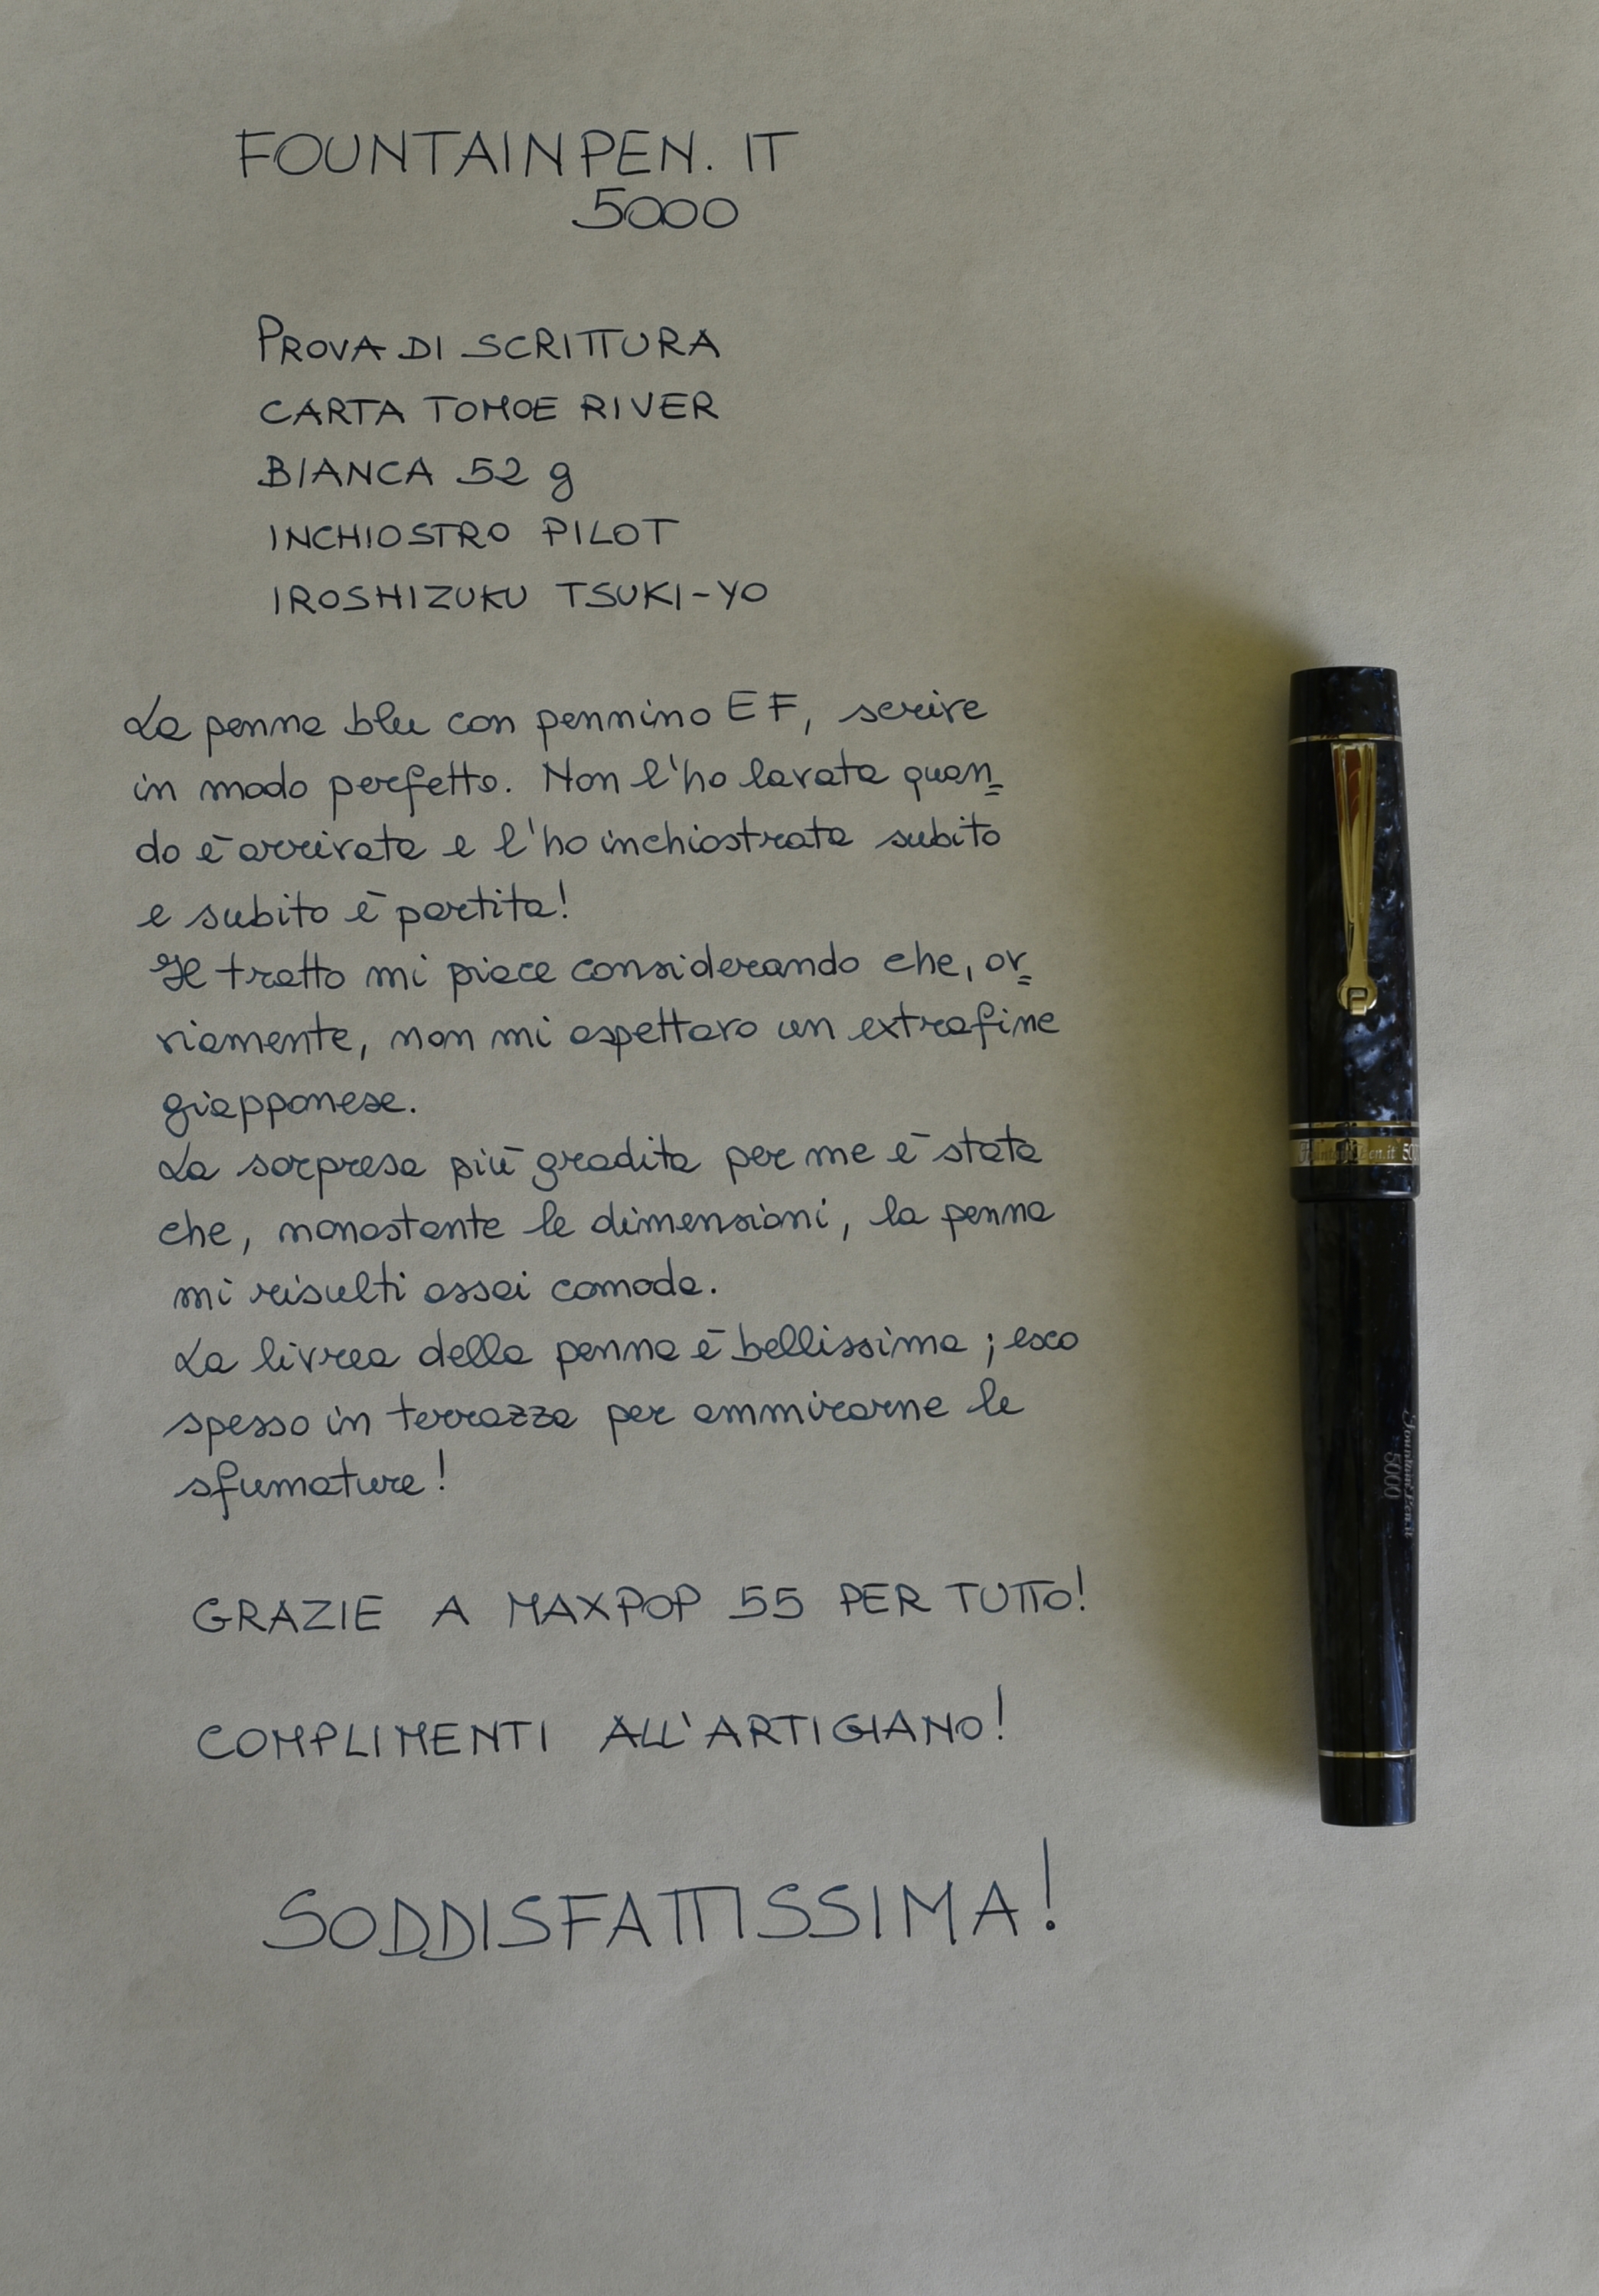 FOUNTAINPEN.IT
5000
PROVA DI SCRITTURA
CARTA TOMOE RIVER
BIANCA 52 g
INCHIOSTRO PILOT
IROSHIZUKU TSUKI-YO
La penna blu con pennino EF, scrive
in modo perfetto. Non l'ho lavata quan=
do è arrivata e l'ho inchiostrata subito
e subito è partita!
Il tratto mi piace considerando che, ov=
viamente, non mi aspettavo un extrafine
giapponese.
La sorpresa più gradita per me è stata
che, nonostante le dimensioni, la penna
mi risulti assai comoda.
La livrea della penna è bellissima; esco
spesso in terrazza per ammirarne le
sfumature!
GRAZIE A MAXPOP 55 PER TUTTO!
COMPLIMENTI ALL'ARTIGIANO!
SODDISFATTISSIMA!
FountainPen.it 500
FountainPen.it
5000